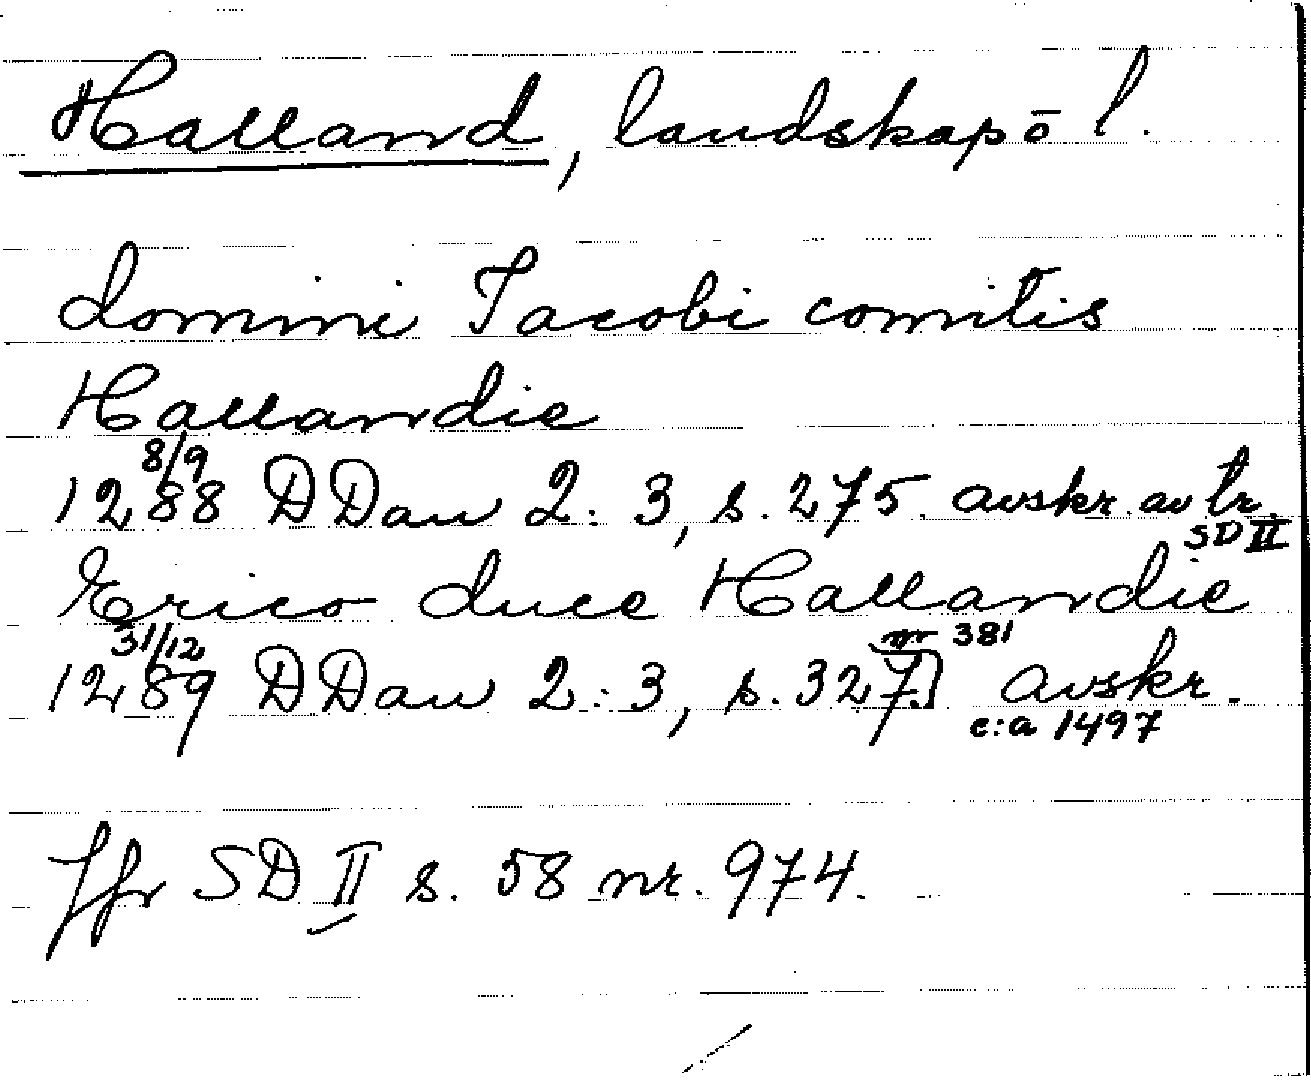 Halland, landskapō l.
domini Jacobi comitis
Hallandie
8/9
1288 DDan 2:3, s. 275. avskr. av tr.
SD II
Erico duce Hallandie
31/12 nr 381
1289 DDan 2:3, s. 327. avskr.
c:a 1497
Jfr SD II s. 58 nr. 974.